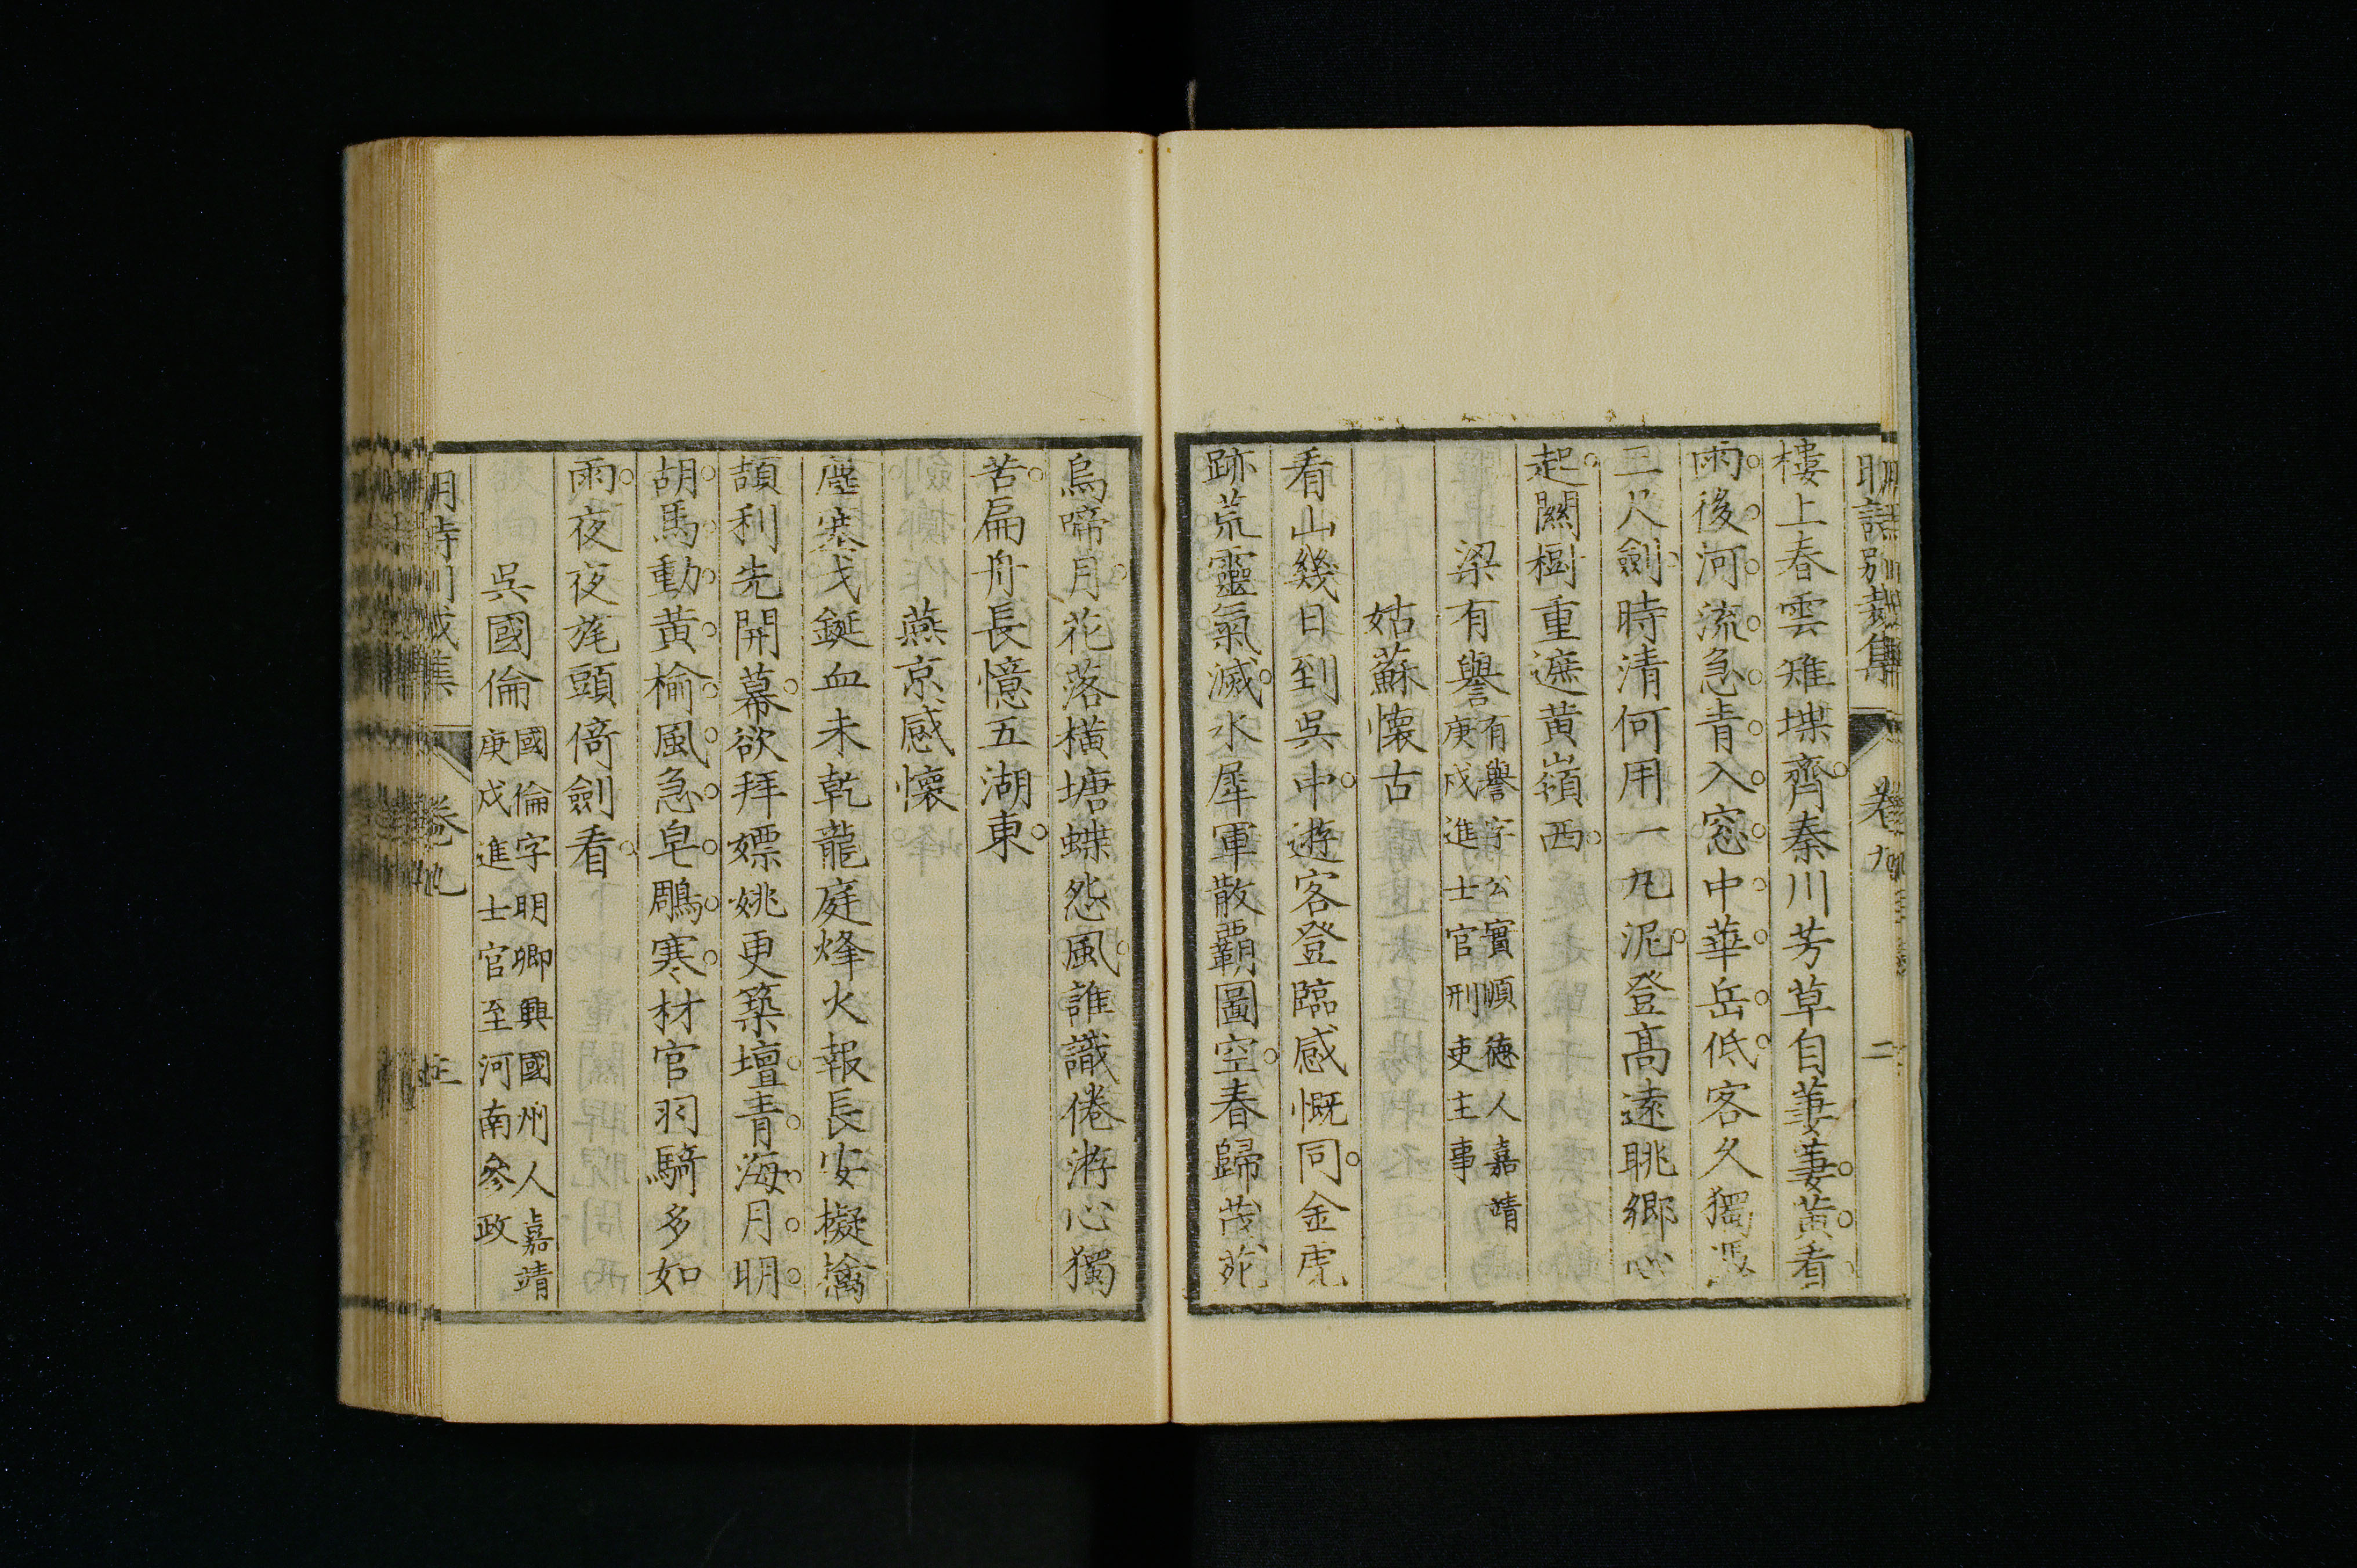 明詩別裁集 卷九 二
樓上春雲雉堞齊秦川芳草自萋萋黃看
雨後河流急青入窓中華岳低客久獨憑
三尺劍時清何用一丸泥登高遠眺鄉心
起關樹重遮黃嶺西
梁有譽
有譽字公實順德人嘉靖
庚戌進士官刑吏主事
姑蘇懷古
看山幾日到吳中遊客登臨感慨同金虎
跡荒靈氣滅水犀軍散霸圖空春歸茂苑
烏啼月花落橫塘蝶怨風誰識倦游心獨
苦扁舟長憶五湖東
燕京感懷
塵塞戈鋋血未乾龍庭烽火報長安擬擒
頡利先開幕欲拜嫖姚更築壇青海月明
胡馬動黃榆風急皂鵰寒材官羽騎多如
雨夜夜旄頭倚劍看
吳國倫
國倫字明卿興國州人嘉靖
庚戌進士官至河南參政
卷九